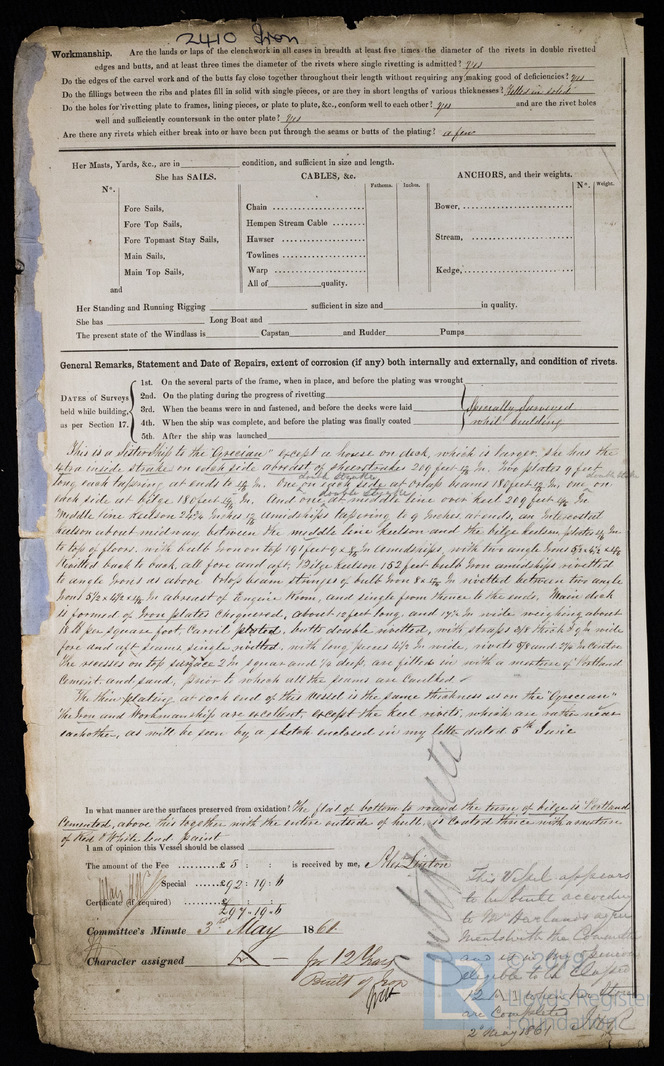 2410 Iron
Workmanship. Are the lands or laps of the clenchwork in all cases in breadth at least five times the diameter of the rivets in double rivetted
edges and butts, and at least three times the diameter of the rivets where single rivetting is admitted? yes
Do the edges of the carvel work and of the butts fay close together throughout their length without requiring any making good of deficiencies? yes
Do the fillings between the ribs and plates fill in solid with single pieces, or are they in short lengths of various thicknesses? Filled in solid
Do the holes for rivetting plate to frames, lining pieces, or plate to plate, &c., conform well to each other? yes and are the rivet holes
well and sufficiently countersunk in the outer plate? yes
Are there any rivets which either break into or have been put through the seams or butts of the plating? a few
Her Masts, Yards, &c., are in condition, and sufficient in size and length.
She has SAILS. CABLES, &c. ANCHORS, and their weights.
N°. Fathoms. Inches. N°. Weight.
Fore Sails, Chain Bower,
Fore Top Sails, Hempen Stream Cable
Fore Topmast Stay Sails, Hawser Stream,
Main Sails, Towlines
Main Top Sails, Warp Kedge,
and All of quality.
Her Standing and Running Rigging sufficient in size and in quality.
She has Long Boat and
The present state of the Windlass is Capstan and Rudder Pumps
General Remarks, Statement and Date of Repairs, extent of corrosion (if any) both internally and externally, and condition of rivets.
DATES of Surveys held while building, as per Section 17.
1st. On the several parts of the frame, when in place, and before the plating was wrought
2nd. On the plating during the progress of rivetting
3rd. When the beams were in and fastened, and before the decks were laid
4th. When the ship was complete, and before the plating was finally coated
5th. After the ship was launched
Specially Surveyed
whilst building
This is a Sistership to the "Grecian" except a house on deck, which is larger. She has the
inside strake on each side abreast of sheerstrake 209 feet In. Two plates 9 feet
long each tapering at ends to In. One on each side at orlop beams 180 feet In, one on
double Strake
each side at bilge 180 feet In. And one on middle line over keel 209 feet In.
double Strake
Middle line Keelson 24 Inches amidships tapering to 9 Inches at ends, an Intercostal
keelson about midway between the middle line keelson and the bilge keelson, plates In
to top of floors, with bulb Iron on top 191 feet 9 x In amidships, with two angle Irons
Rivetted back to back all fore and aft, Bilge keelson 152 feet bulb Iron amidships rivetted
to angle Irons as above Orlop beam stringers of bulb Iron 8 x In rivetted between two angle
Irons 5½ x 4½ x In abreast of Engine Room, and single from thence to the ends. Main deck
is formed of Iron plates Chequered, about 12 feet long, and In wide weighing about
18 lb per square foot, Carvil plated, butts double rivetted, with straps 3/8 thick & 9 In wide
fore and aft seams single rivetted, with long pieces 4½ In wide, rivets 5/8 and 2½ In Centre
The recesses on top surface 2 In square and ¼ deep, are filled in with a mixture of Portland
Cement and sand, prior to which all the seams are Caulked
The thin plating at each end of this Vessel is the same thickness as on the "Grecian"
The Iron and Workmanship are excellent, except the keel rivets, which are rather near
each other, as will be seen by a sketch enclosed in my letter dated 5th June
In what manner are the surfaces preserved from oxidation? The flat of bottom to round the turn of bilge is Portland
Cemented, above this together with the entire outside of hull, is Coated thrice with a mixture
of Red & White lead paint
I am of opinion this Vessel should be classed
The amount of the Fee £ 5 : : is received by me,
Special £92 : 19 : 6
Certificate (if required)
£97 . 19 . 6
Committee's Minute 3rd May 1861
Character assigned A – for 12 Years
Built of Iron
Certificate
This Vessel appears
to be built according
to Mr Harland's agree
ments with the Committee
and is in my opinion
eligible to be Classed
12 A 1 when her Stores
are Completed
2d May 1861
LR
© 2019
Lloyd's Register
Foundation